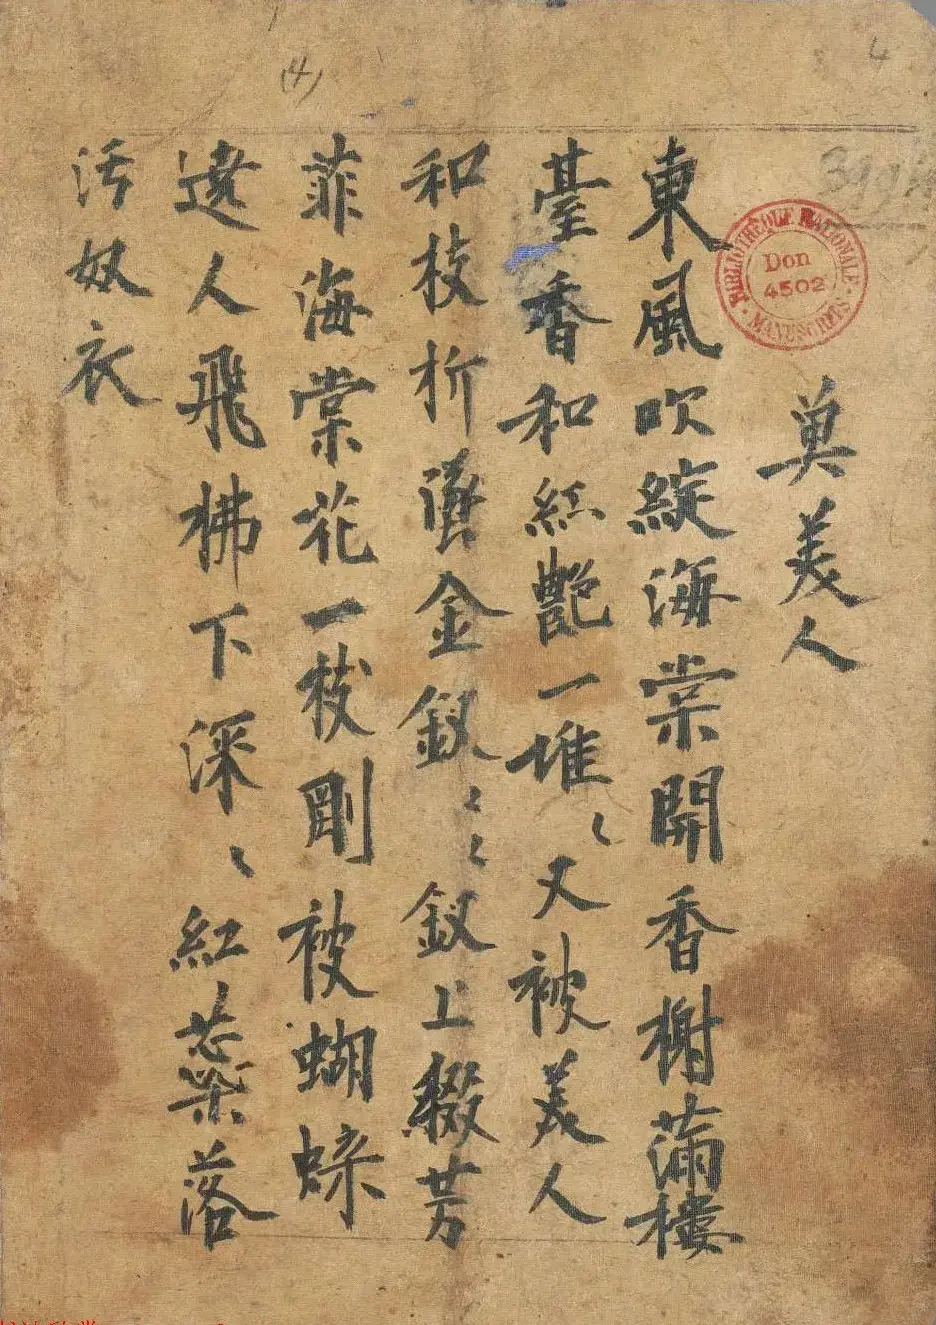 奠美人
東風吹綻海棠開香榭滿樓
臺香和紅艷一堆〻又被美人
和枝折墜金釵〻〻釵上綴芳
菲海棠花一枝剛被蝴蝶
遶人飛拂下深〻紅蕊落
污奴衣
(4)
4
BIBLIOTHEQUE NATIONALE
Don
4502
MANUSCRITS